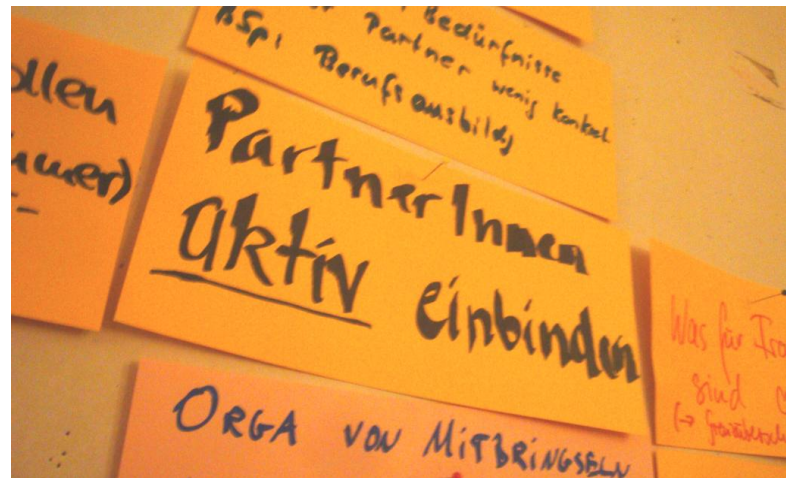 Bedürfnisse
Partner wenig konkret
Bsp. Berufsausbildg
ollen
mmer)
PartnerInnen
aktiv einbinden
Was für
sind
ORGA VON MITBRINGSELN